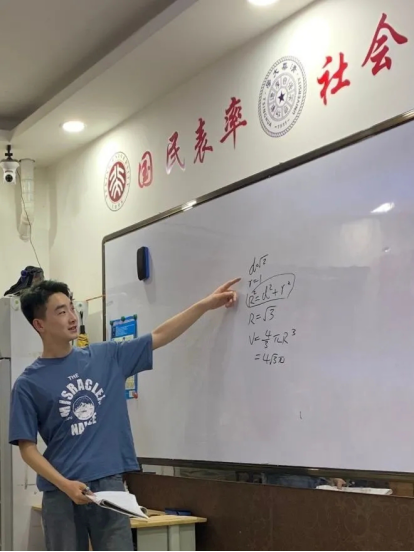 国民表率 社会
d=√2
r=1
R²=d²+r²
R=√3
V=4/3πR³
=4√3π
THE
MISRACLEI